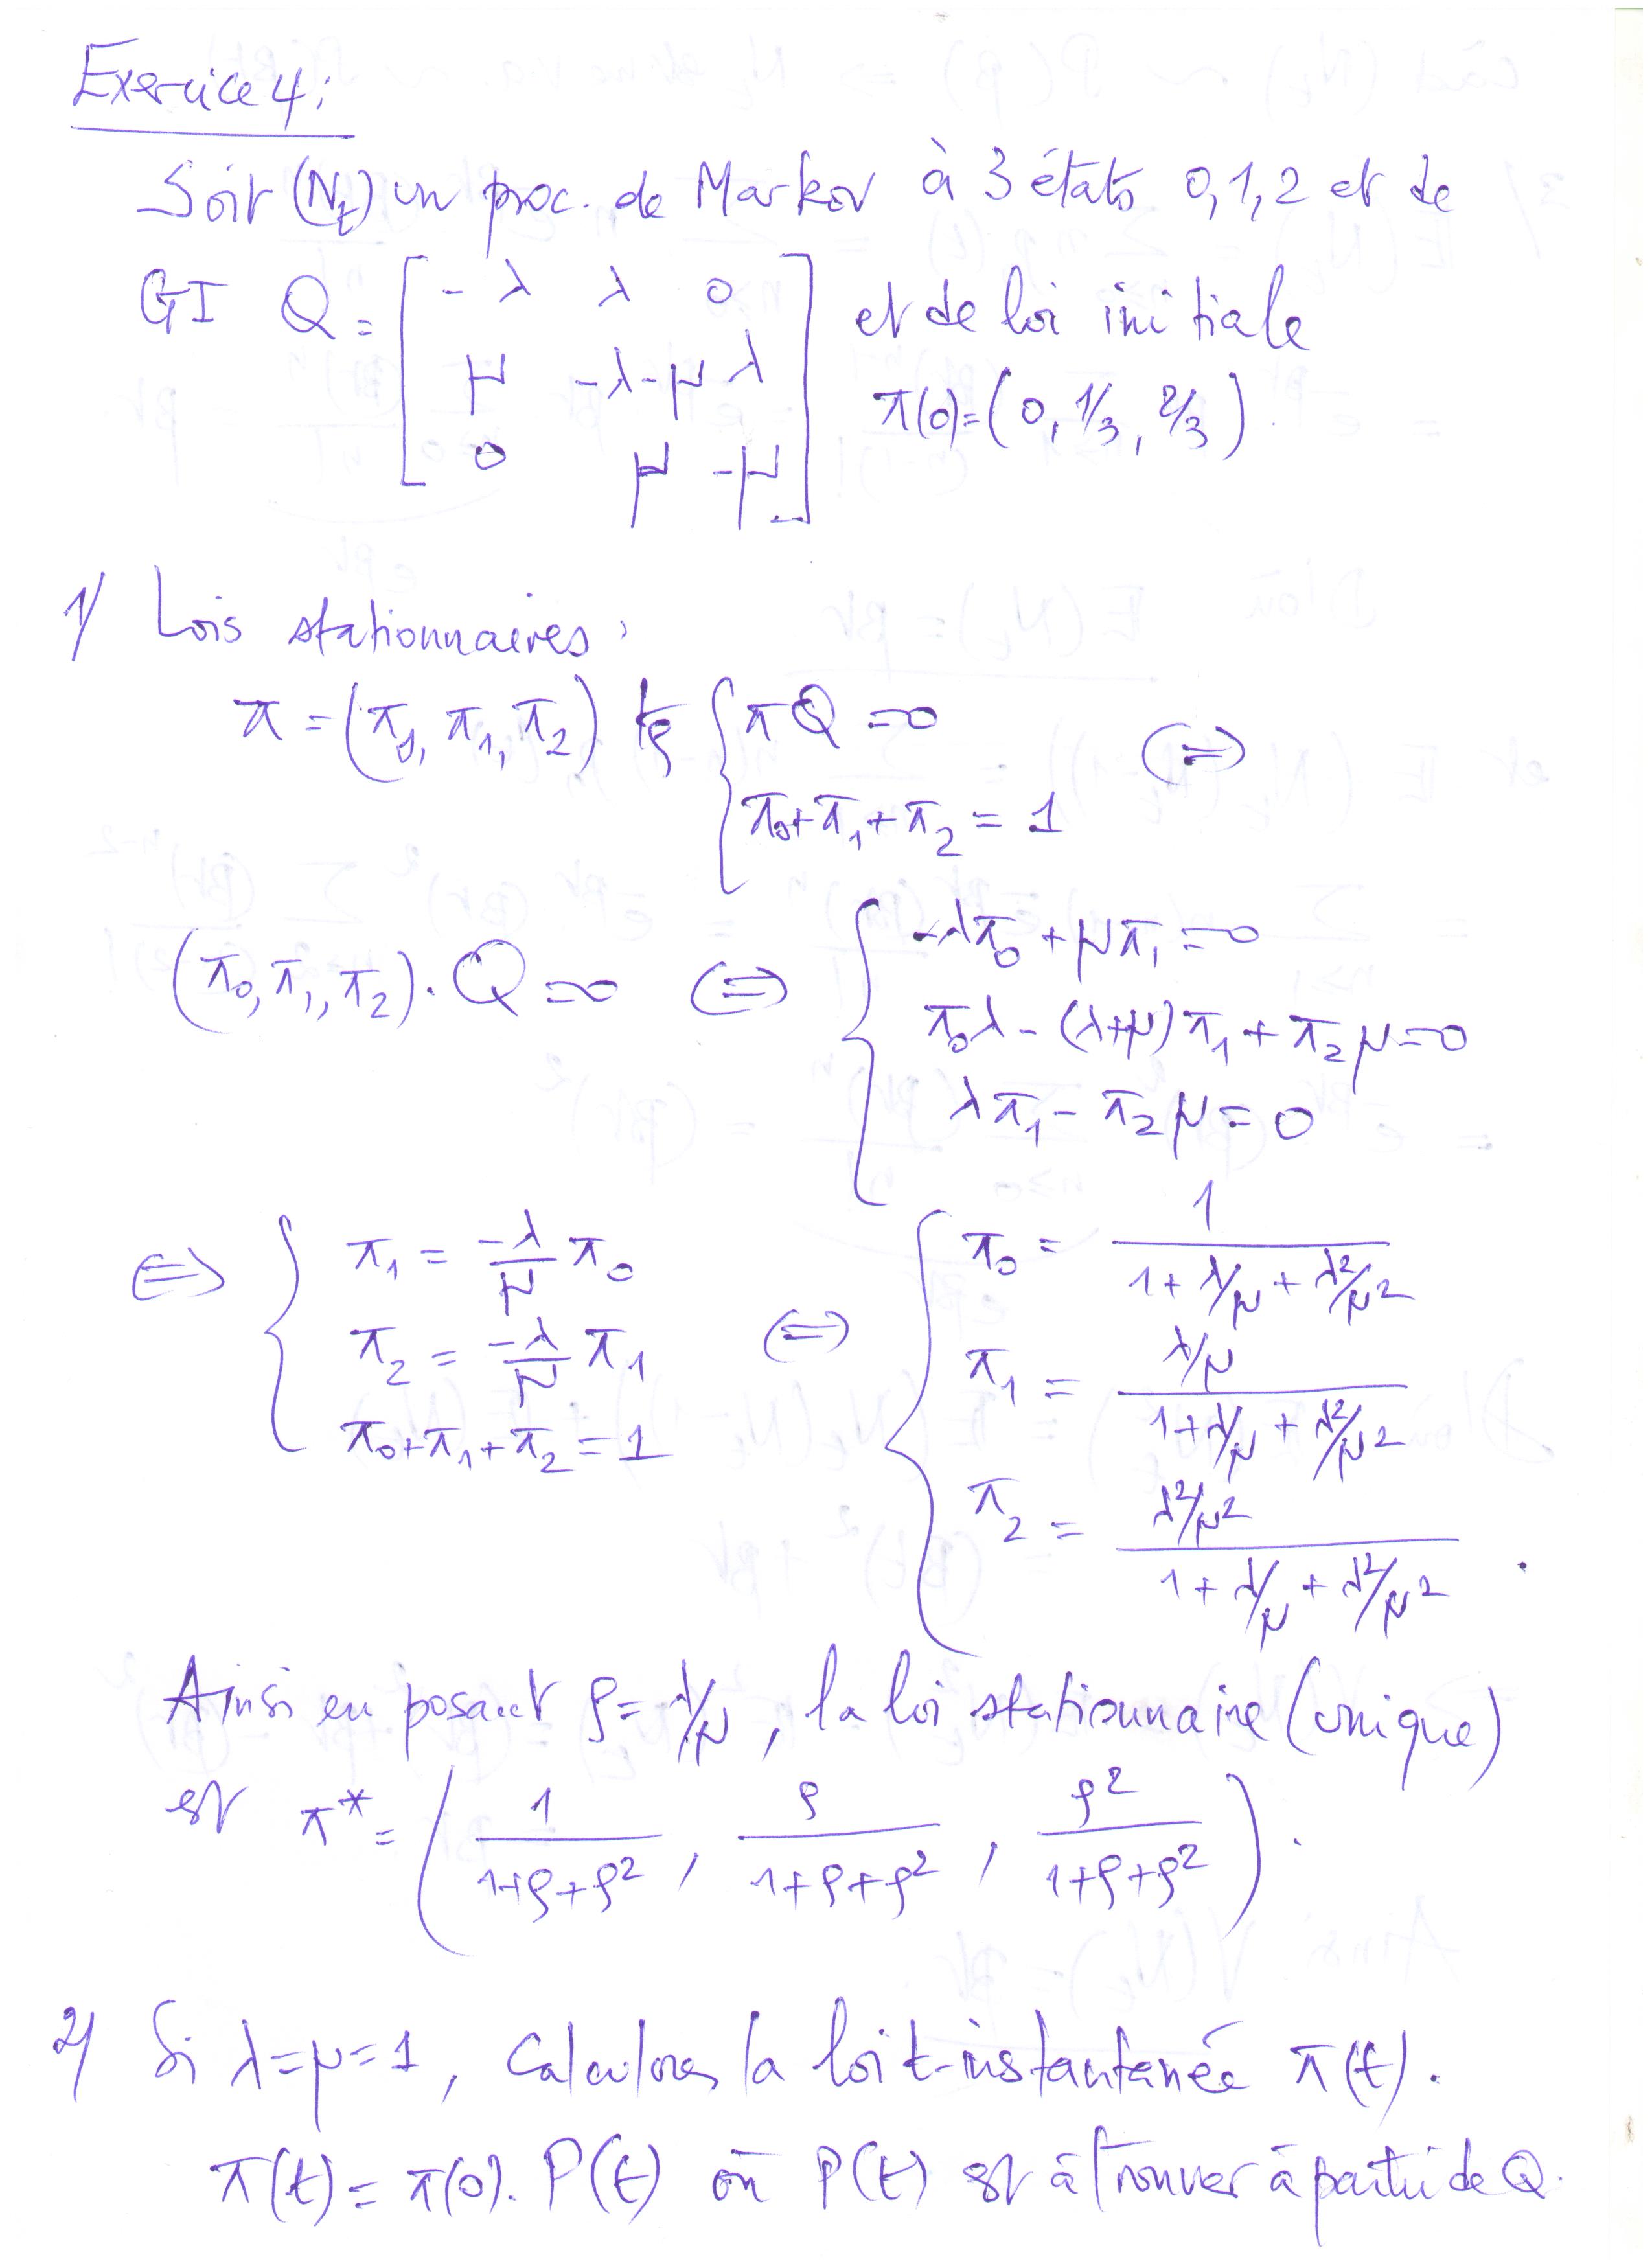 Exercice 4 :
Soit (N_t) un proc. de Markov à 3 états 0,1,2 et de
GI Q = [ -λ λ 0 et de loi initiale
μ -λ-μ λ π(0) = (0, 1/3, 2/3).
0 μ -μ ]
1/ Lois stationnaires :
π = (π_0, π_1, π_2) tq { πQ = 0 (⇔)
π_0 + π_1 + π_2 = 1
(π_0, π_1, π_2) . Q = 0 (⇔) { -λπ_0 + μπ_1 = 0
π_0 λ - (λ+μ) π_1 + π_2 μ = 0
λπ_1 - π_2 μ = 0
⇔ { π_1 = -λ/μ π_0 (⇔) { π_0 = 1 / (1 + λ/μ + λ²/μ²)
π_2 = -λ/μ π_1 π_1 = (λ/μ) / (1 + λ/μ + λ²/μ²)
π_0 + π_1 + π_2 = 1 π_2 = (λ²/μ²) / (1 + λ/μ + λ²/μ²) .
Ainsi en posant ρ = λ/μ, la loi stationnaire (unique)
est π* = ( 1/(1+ρ+ρ²) , ρ/(1+ρ+ρ²) , ρ²/(1+ρ+ρ²) ).
2/ Si λ=μ=1, Calculons la loi t-instantanée π(t).
π(t) = π(0). P(t) où P(t) est à trouver à partir de Q.